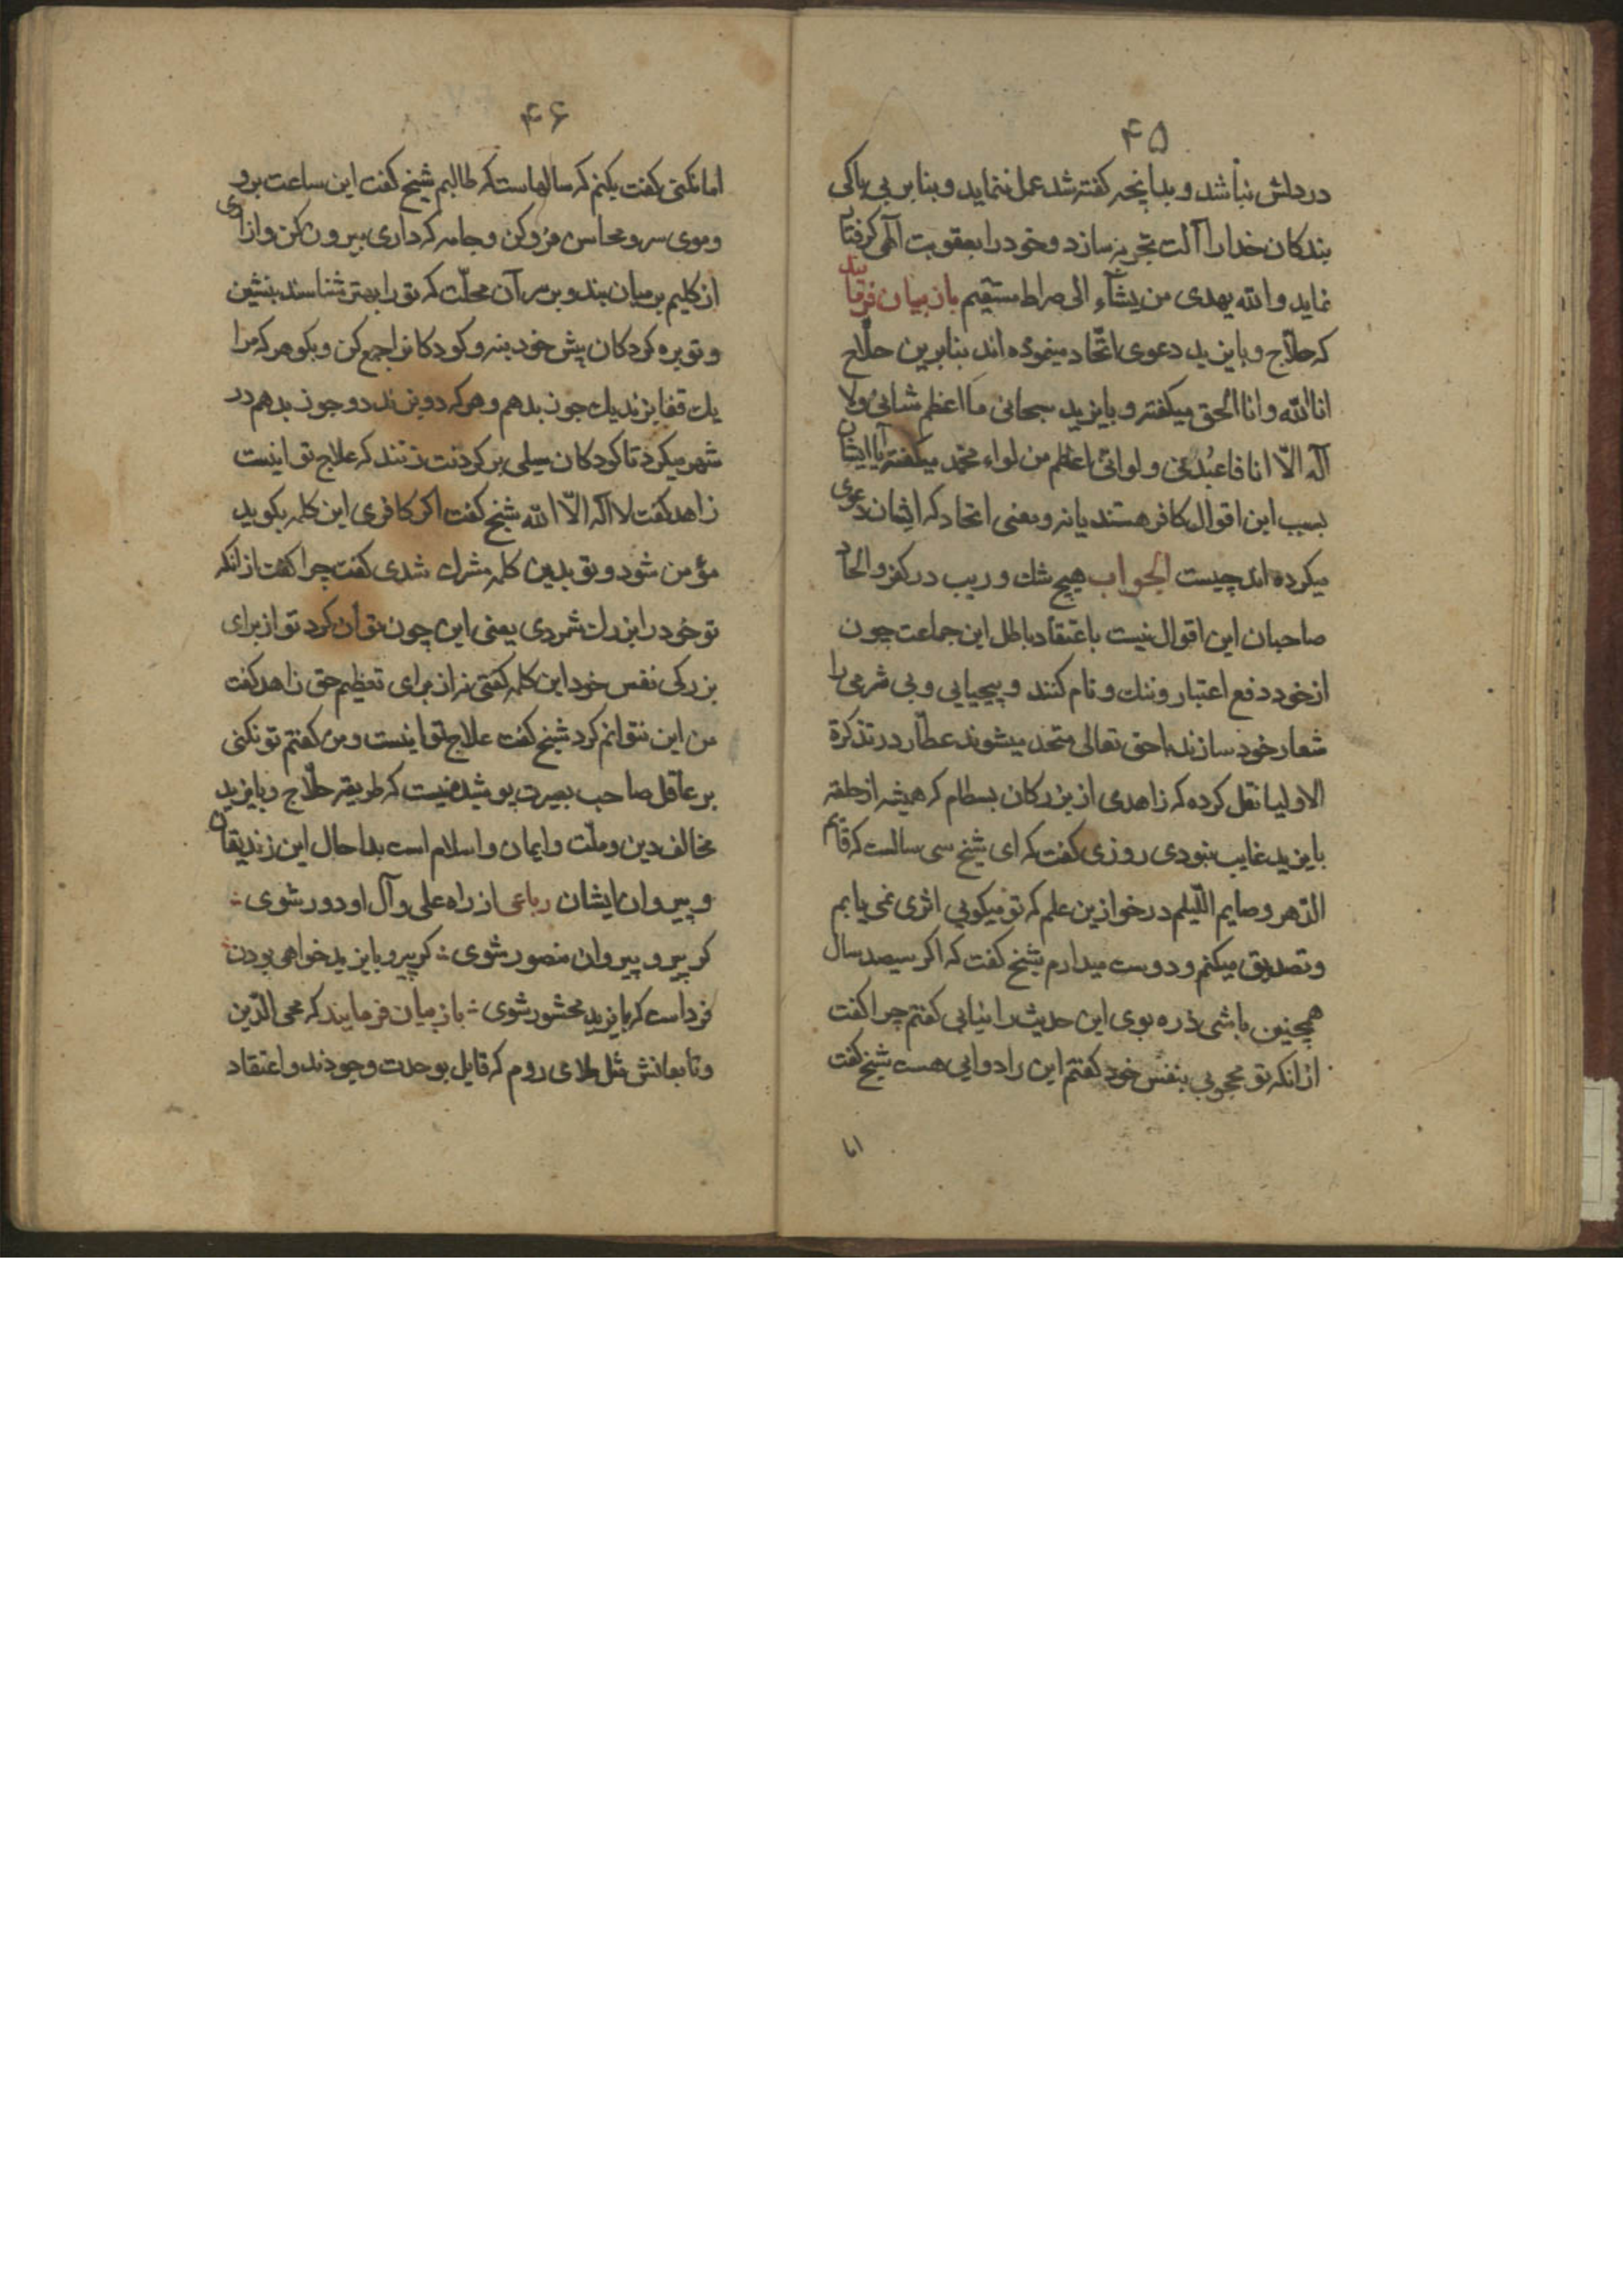 ۴۵
در دلش نباشد و بدانچه گفته شد عمل ننماید و بنابر بی باکی
بندکان خدا را آلت تجربه سازد و خود را بعقوبت الهی کرفتار
نماید و الله یهدی من یشآء الی صراط مستقیم باز بیان فرمایند
که حلاّج و بایزید دعوی اتّحاد مینموده اند بنابرین حلّاج
انا الله و انا الحق میکفته و بایزید سبحانی ما اعظم شانی و لا
اله الّا انا فاعبدنی و لوائی اعظم من لواء محمّد میکفته آیا ایشان
بسبب این اقوال کافر هستند یا نه و معنی اتحاد که ایشان دعوی
میکرده اند چیست الجواب هیچ شك و ریب در کفر و الحاد
صاحبان این اقوال نیست باعتقاد باطل این جماعت چون
از خود دفع اعتبار و ننك و نام کنند و بیحیایی و بی شرمی را
شعار خود سازند با حق تعالی متحد میشوند عطّار در تذکرة
الاولیا نقل کرده که زاهدی از بزرکان بسطام که همیشه از حلقه
بایزید غایب نبودی روزی کفت که ای شیخ سی سالست که قایم
الدّهر و صایم اللّیلم در خود ازین علم که تو میکویی اثری نمی یابم
و تصدیق میکنم و دوست میدارم شیخ کفت که اکر سیصد سال
همچنین باشی ذره بوی این حدیث را نیابی کفتم چرا کفت
از انکه تو محجوبی بنفس خود کفتم این را دوایی هست شیخ کفت
اما
۴۶
اما نکنی کفت بکنم که سالهاست که طالبم شیخ کفت این ساعت برو
و موی سر و محاسن فرو کن و جامه که داری بیرون کن و ازاری
از کلیم بر میان بند و بر سر آن محلّت که تو را بهتر شناسند بنشین
و توبره کردکان پیش خود بنه و کودکانرا جمع کن و بکو هر که مرا
یك قفا بزند یك جوز بدهم و هر که دو بزند دو جوز بدهم در
شهر میکرد تا کودکان سیلی بر کردنت زنند که علاج تو اینست
زاهد کفت لا اله الّا الله شیخ کفت اکر کافری این کلمه بکوید
مؤمن شود و تو بدین کلمه مشرك شدی کفت چرا کفت از انکه
تو خود را بزرك شمردی یعنی این چون توان کرد تو از برای
بزرکی نفس خود این کلمه کفتی نه از برای تعظیم حق زاهد کفت
من این نتوانم کرد شیخ کفت علاج تو اینست و من کفتم تو نکنی
بر عاقل صاحب بصیرت پوشیده نیست که طریقه حلّاج و بایزید
مخالف دین و ملّت و ایمان و اسلام است بدا حال این زندیقان
و پیروان ایشان رباعی از راه علی و آل او دور شوی
کر پیرو پیروان منصور شوی کر پیرو بایزید خواهی بودن
فرداست که بایزید محشور شوی باز بیان فرمایند که محی الدّین
و تابعانش مثل ملای روم که قایل بوحدت وجودند و اعتقاد